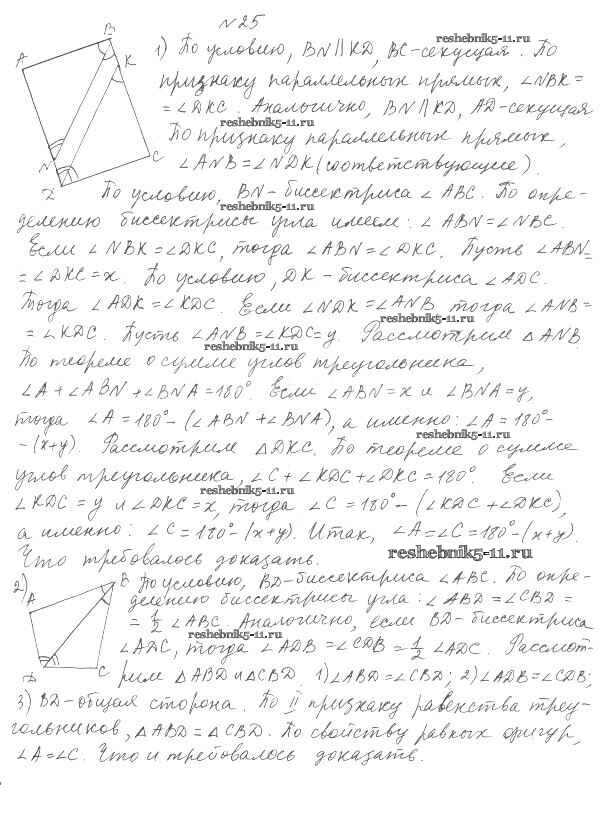 №25
reshebnik5-11.ru
1) По условию, BN∥KD, BC-секущая. По
признаку параллельных прямых, ∠NBK =
= ∠DKC. Аналогично, BN∥KD, AD-секущая
reshebnik5-11.ru
По признаку параллельных прямых,
∠ANB = ∠NDK (соответствующие).
По условию, BN-биссектриса ∠ABC. По опре-
reshebnik5-11.ru
делению биссектрисы угла имеем: ∠ABN = ∠NBC.
Если ∠NBK = ∠DKC, тогда ∠ABN = ∠DKC. Пусть ∠ABN =
= ∠DKC = x. По условию, DK-биссектриса ∠ADC.
Тогда ∠ADK = ∠KDC. Если ∠NDK = ∠ANB, тогда ∠ANB =
reshebnik5-11.ru
= ∠KDC. Пусть ∠ANB = ∠KDC = y. Рассмотрим △ANB.
reshebnik5-11.ru
По теореме о сумме углов треугольника,
∠A + ∠ABN + ∠BNA = 180°. Если ∠ABN = x и ∠BNA = y,
тогда ∠A = 180° - (∠ABN + ∠BNA), а именно: ∠A = 180° -
reshebnik5-11.ru
- (x+y). Рассмотрим △DKC. По теореме о сумме
углов треугольника, ∠C + ∠KDC + ∠DKC = 180°. Если
reshebnik5-11.ru
∠KDC = y и ∠DKC = x, тогда ∠C = 180° - (∠KDC + ∠DKC),
а именно: ∠C = 180° - (x+y). Итак, ∠A = ∠C = 180° - (x+y).
Что требовалось доказать.
reshebnik5-11.ru
2) По условию, BD-биссектриса ∠ABC. По опре-
делению биссектрисы угла: ∠ABD = ∠CBD =
= 1/2 ∠ABC. Аналогично, если BD-биссектриса
reshebnik5-11.ru
∠ADC, тогда ∠ADB = ∠CDB = 1/2 ∠ADC. Рассмот-
рим △ABD и △CBD. 1) ∠ABD = ∠CBD; 2) ∠ADB = ∠CDB;
3) BD-общая сторона. По II признаку равенства треу-
гольников, △ABD = △CBD. По свойству равных фигур,
∠A = ∠C. Что и требовалось доказать.
A
B
K
N
D
C
A
B
D
C